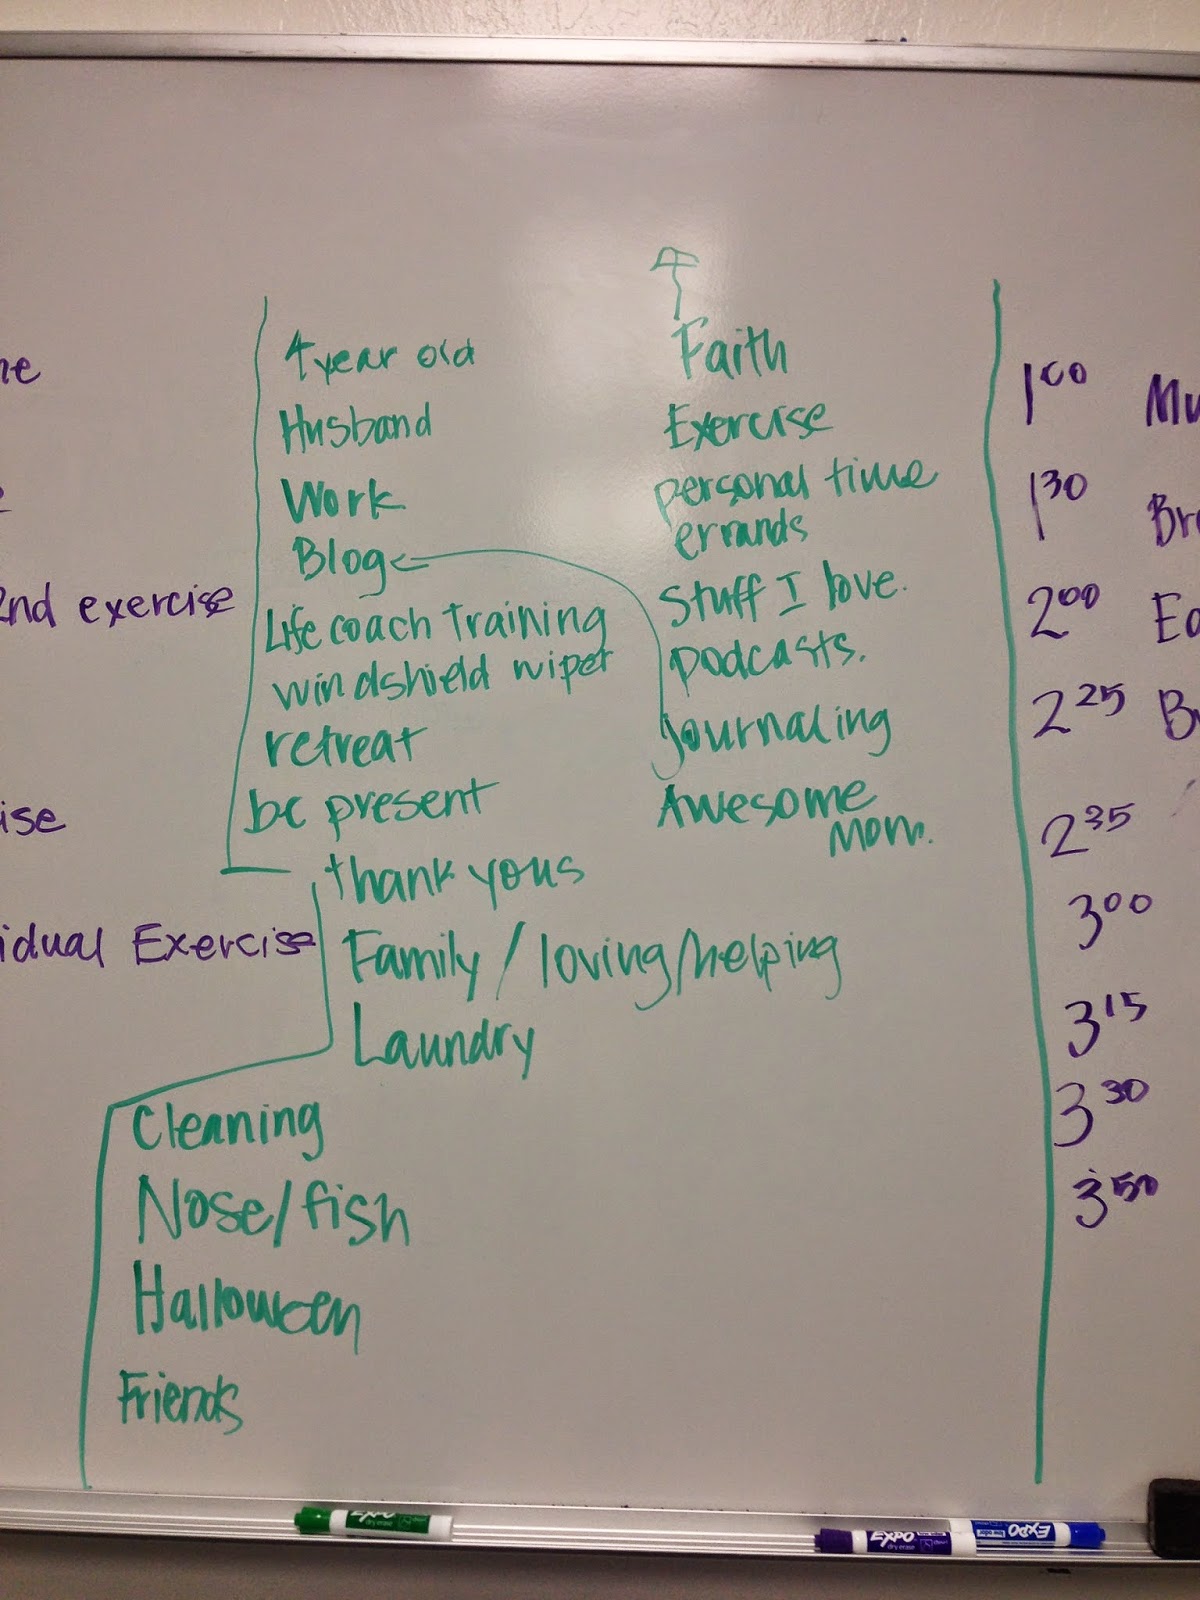 2nd exercise
Exercise
4 year old
Husband
Work
Blog
Life coach training
windshield wiper
retreat
be present
thank yous
Family / loving/helping
Laundry
Cleaning
Nose/fish
Halloween
Friends
Faith
Exercise
personal time
errands
Stuff I love.
podcasts.
journaling
Awesome
Mom.
1 00
1 30
2 00
2 25
2 35
3 00
3 15
3 30
3 50
EXPO
dry erase
EXPO
dry erase
EXPO